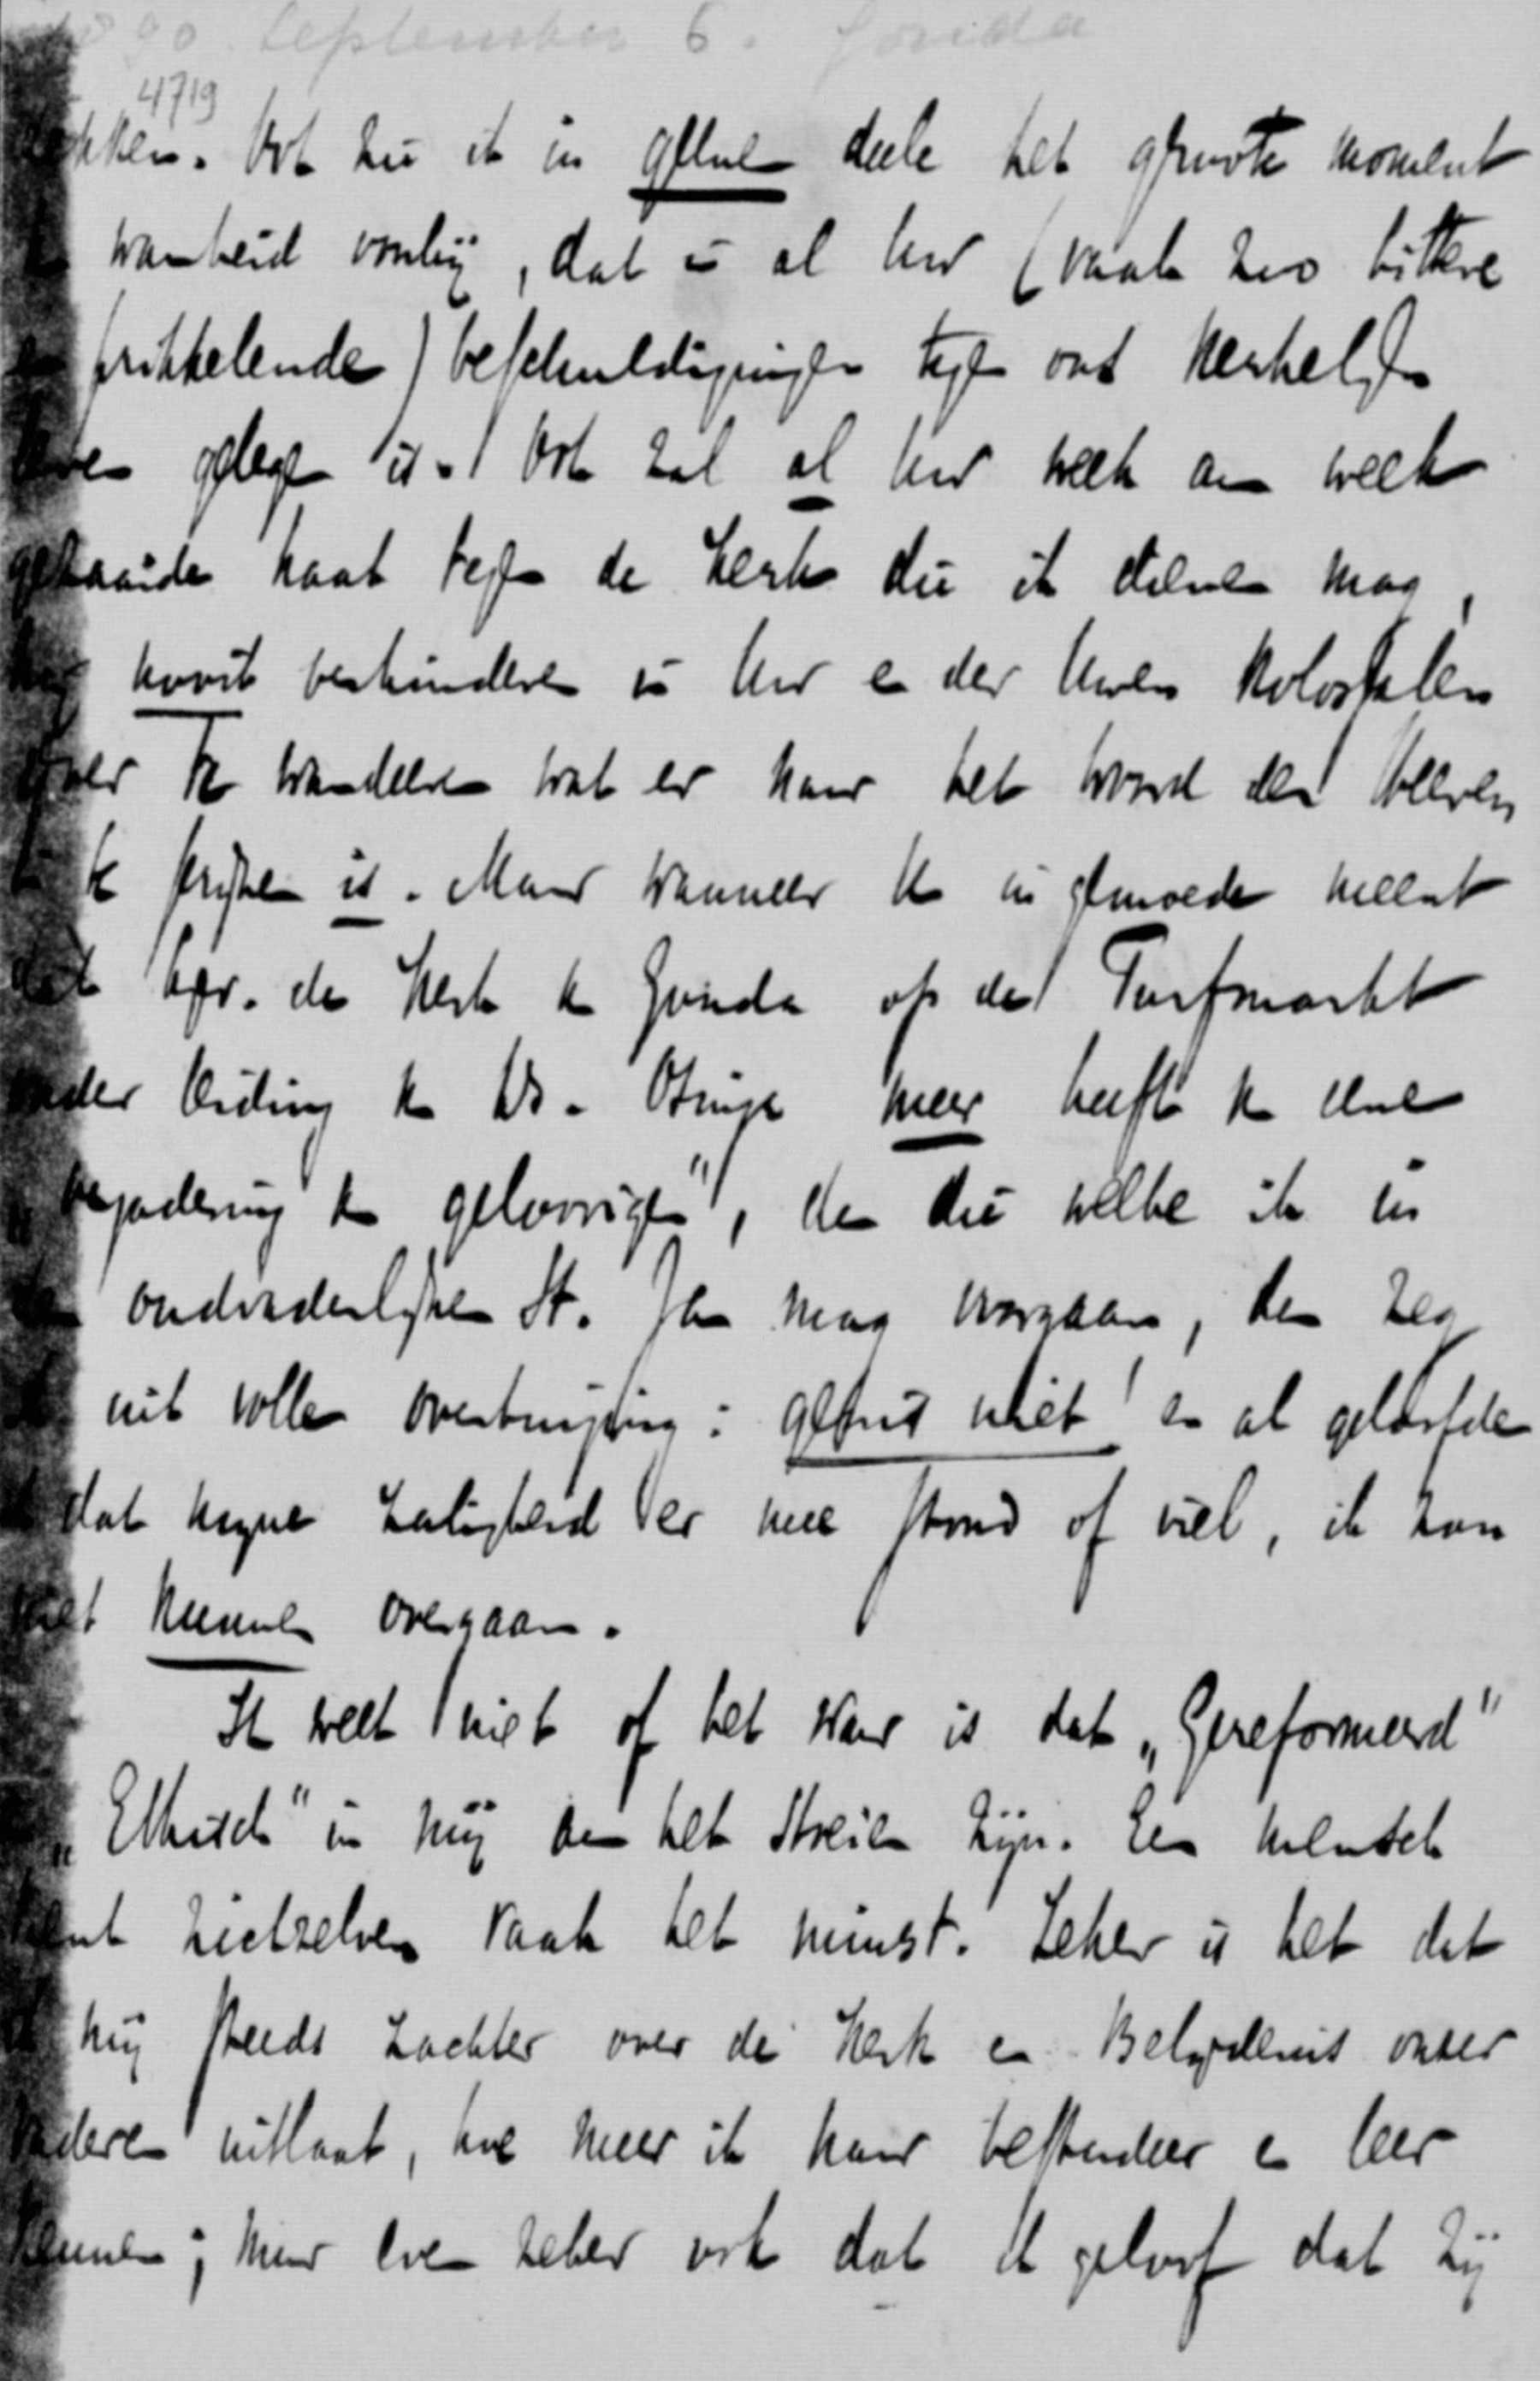 90 September 6. Gouda
4719
Ook zie ik in geenen deele het groote moment
waarheid voorbij, dat in al Uw (vaak zoo bittere
prikkelende) beschuldigingen tegen ons kerkelijk
leven gelegen is. Ook zal al Uw week aan week
gezaaide haat tegen de Kerk die ik dienen mag,
nooit verhinderen in Uw en der Uwen kolossalen
ijver te waardeeren wat er naar het woord des Heeren
te prijzen is. Maar wanneer U in gemoede meent
dat bijv. de Kerk te Gouda op de Turfmarkt
onder leiding van Ds. meer heeft van eene
vergadering van geloovigen", dan die welke ik in
den oudvaderlijken St. Jan mag voorgaan, dan zeg
ik uit volle overtuiging: gewis niet! en al geloofde
ik dat mijne zaligheid er mee stond of viel, ik zou
niet kunnen overgaan.
Ik weet niet of het waar is dat „Gereformeerd"
„Ethisch" in mij aan het strijden zijn. Een mensch
kent zichzelven vaak het minst. Zeker is het dat
ik mij steeds zachter over de Kerk en Belijdenis onzer
vaderen uitlaat, hoe meer ik haar bestudeer en leer
kennen; maar even zeker ook dat ik geloof dat zij